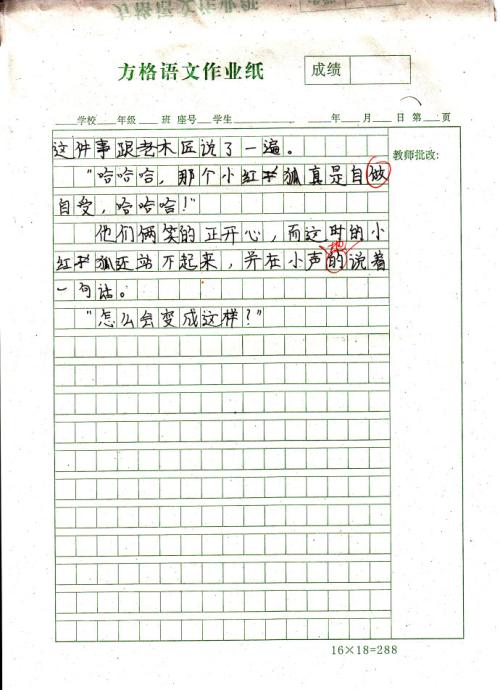 方格语文作业纸
成绩
学校 年级 班 座号 学生 年 月 日 第 页
教师批改:
这件事跟老木匠说了一遍。
“哈哈哈，那个小红狐真是自做
自受，哈哈哈！”
他们俩笑的正开心，而这时的小
红狐还站不起来，并在小声的说着
地
一句话。
“怎么会变成这样？”
16×18=288